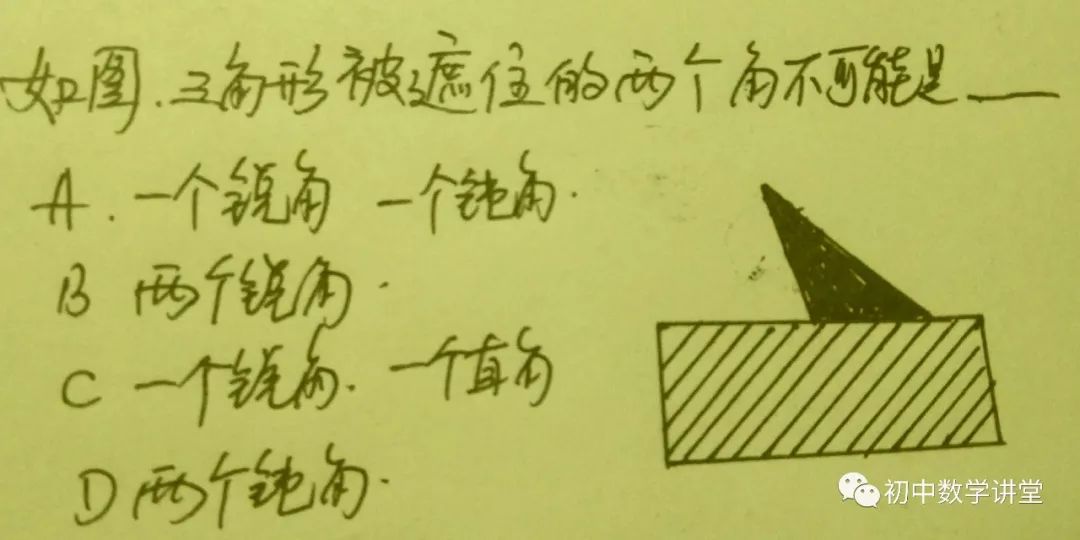 如图.三角形被遮住的两个角不可能是___
A.一个锐角 一个钝角.
B 两个锐角.
C 一个锐角.一个直角
D 两个钝角.
初中数学讲堂